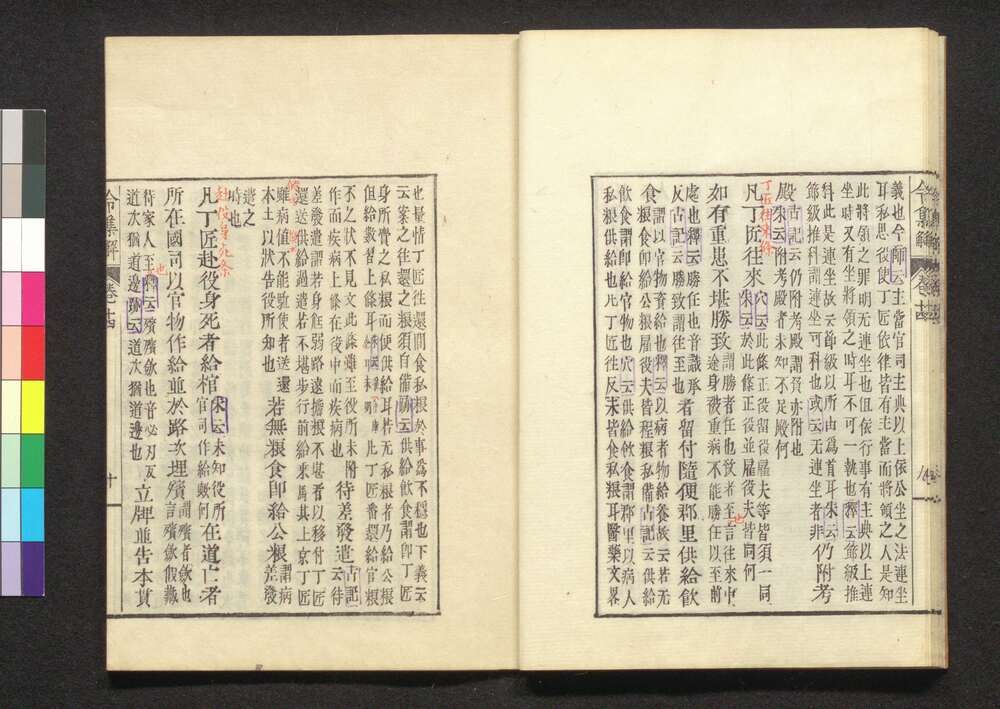 義也今師云主當官司主典以上依公坐之法連坐
此將領之罪明无連坐也但依行事有主典以上連
耳私思役使丁匠依律皆有主當而將領之人是知
坐時又有坐將領之時耳不可一執也釋云節級推
科此是連坐故云節級以所由爲首耳朱云
節級推科謂連坐可科也或云无連坐者非
仍附考
殿
古記云仍附考殿謂
亦附也
朱云附考殿者未知不足殿何
丁匠往來條
凡丁匠往來
穴云此條正役留役雇夫等皆須一同
朱云於此條正役並雇役夫皆同何
如有重患不堪勝致
謂勝者任也致者至言往來中
途身被重病不能勝任以至前
處也釋云勝任也音識承
反古記云勝致謂往至也
者留付隨便郡里供給飲
食
謂以官物充給也釋云以病者物給養故云若无
食卽給公粮雇役夫皆程粮私備古記云供給
飲食謂卽給官物也穴云供給飲食謂郡里以病人
私粮供給也此丁匠往反未皆食私粮耳醫藥文畧
也量情丁匠往還間食私粮於事爲不穩也下義云
云案之往還之粮須自備跡云供給飲食謂卽丁匠
身所賷之私粮而便供給耳若无私粮者乃給公粮
但給數習上條耳
此丁匠番還給官粮
不之狀不見文此條雖至役所未附
作而疾病上條在役中而疾病也
待差發遣
古記
云待
差發遣謂若身尫弱路遠擔粮不堪者以移付丁匠
還送供給過遣若不堪步行前給來馬其上京丁匠
雖病値不能駈使者送還
本土以狀告役所知也
若無粮食卽給公粮
謂病
差發
遣之
時也
赴役身死条
凡丁匠赴役身死者給棺
朱云未知役所
官司作給歟何
在道亡者
所在國司以官物作給並於路次埋殯
謂殯者斂也
言殯斂假藏
待家人至也釋云殯斂也音必刃反
道次猶道邊跡云道次猶道邊也
立牌並告本貫
令集解
卷十四
十